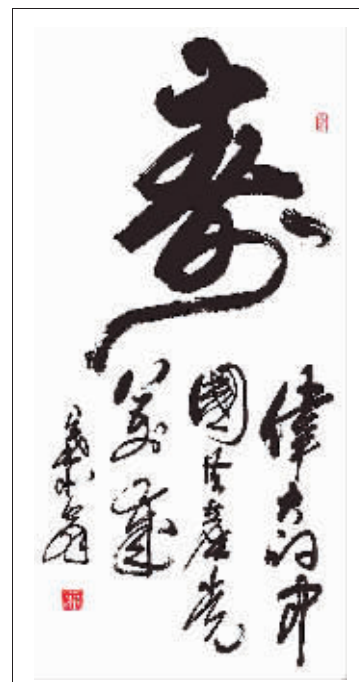 寿
偉大的中
國共產党
萬歲